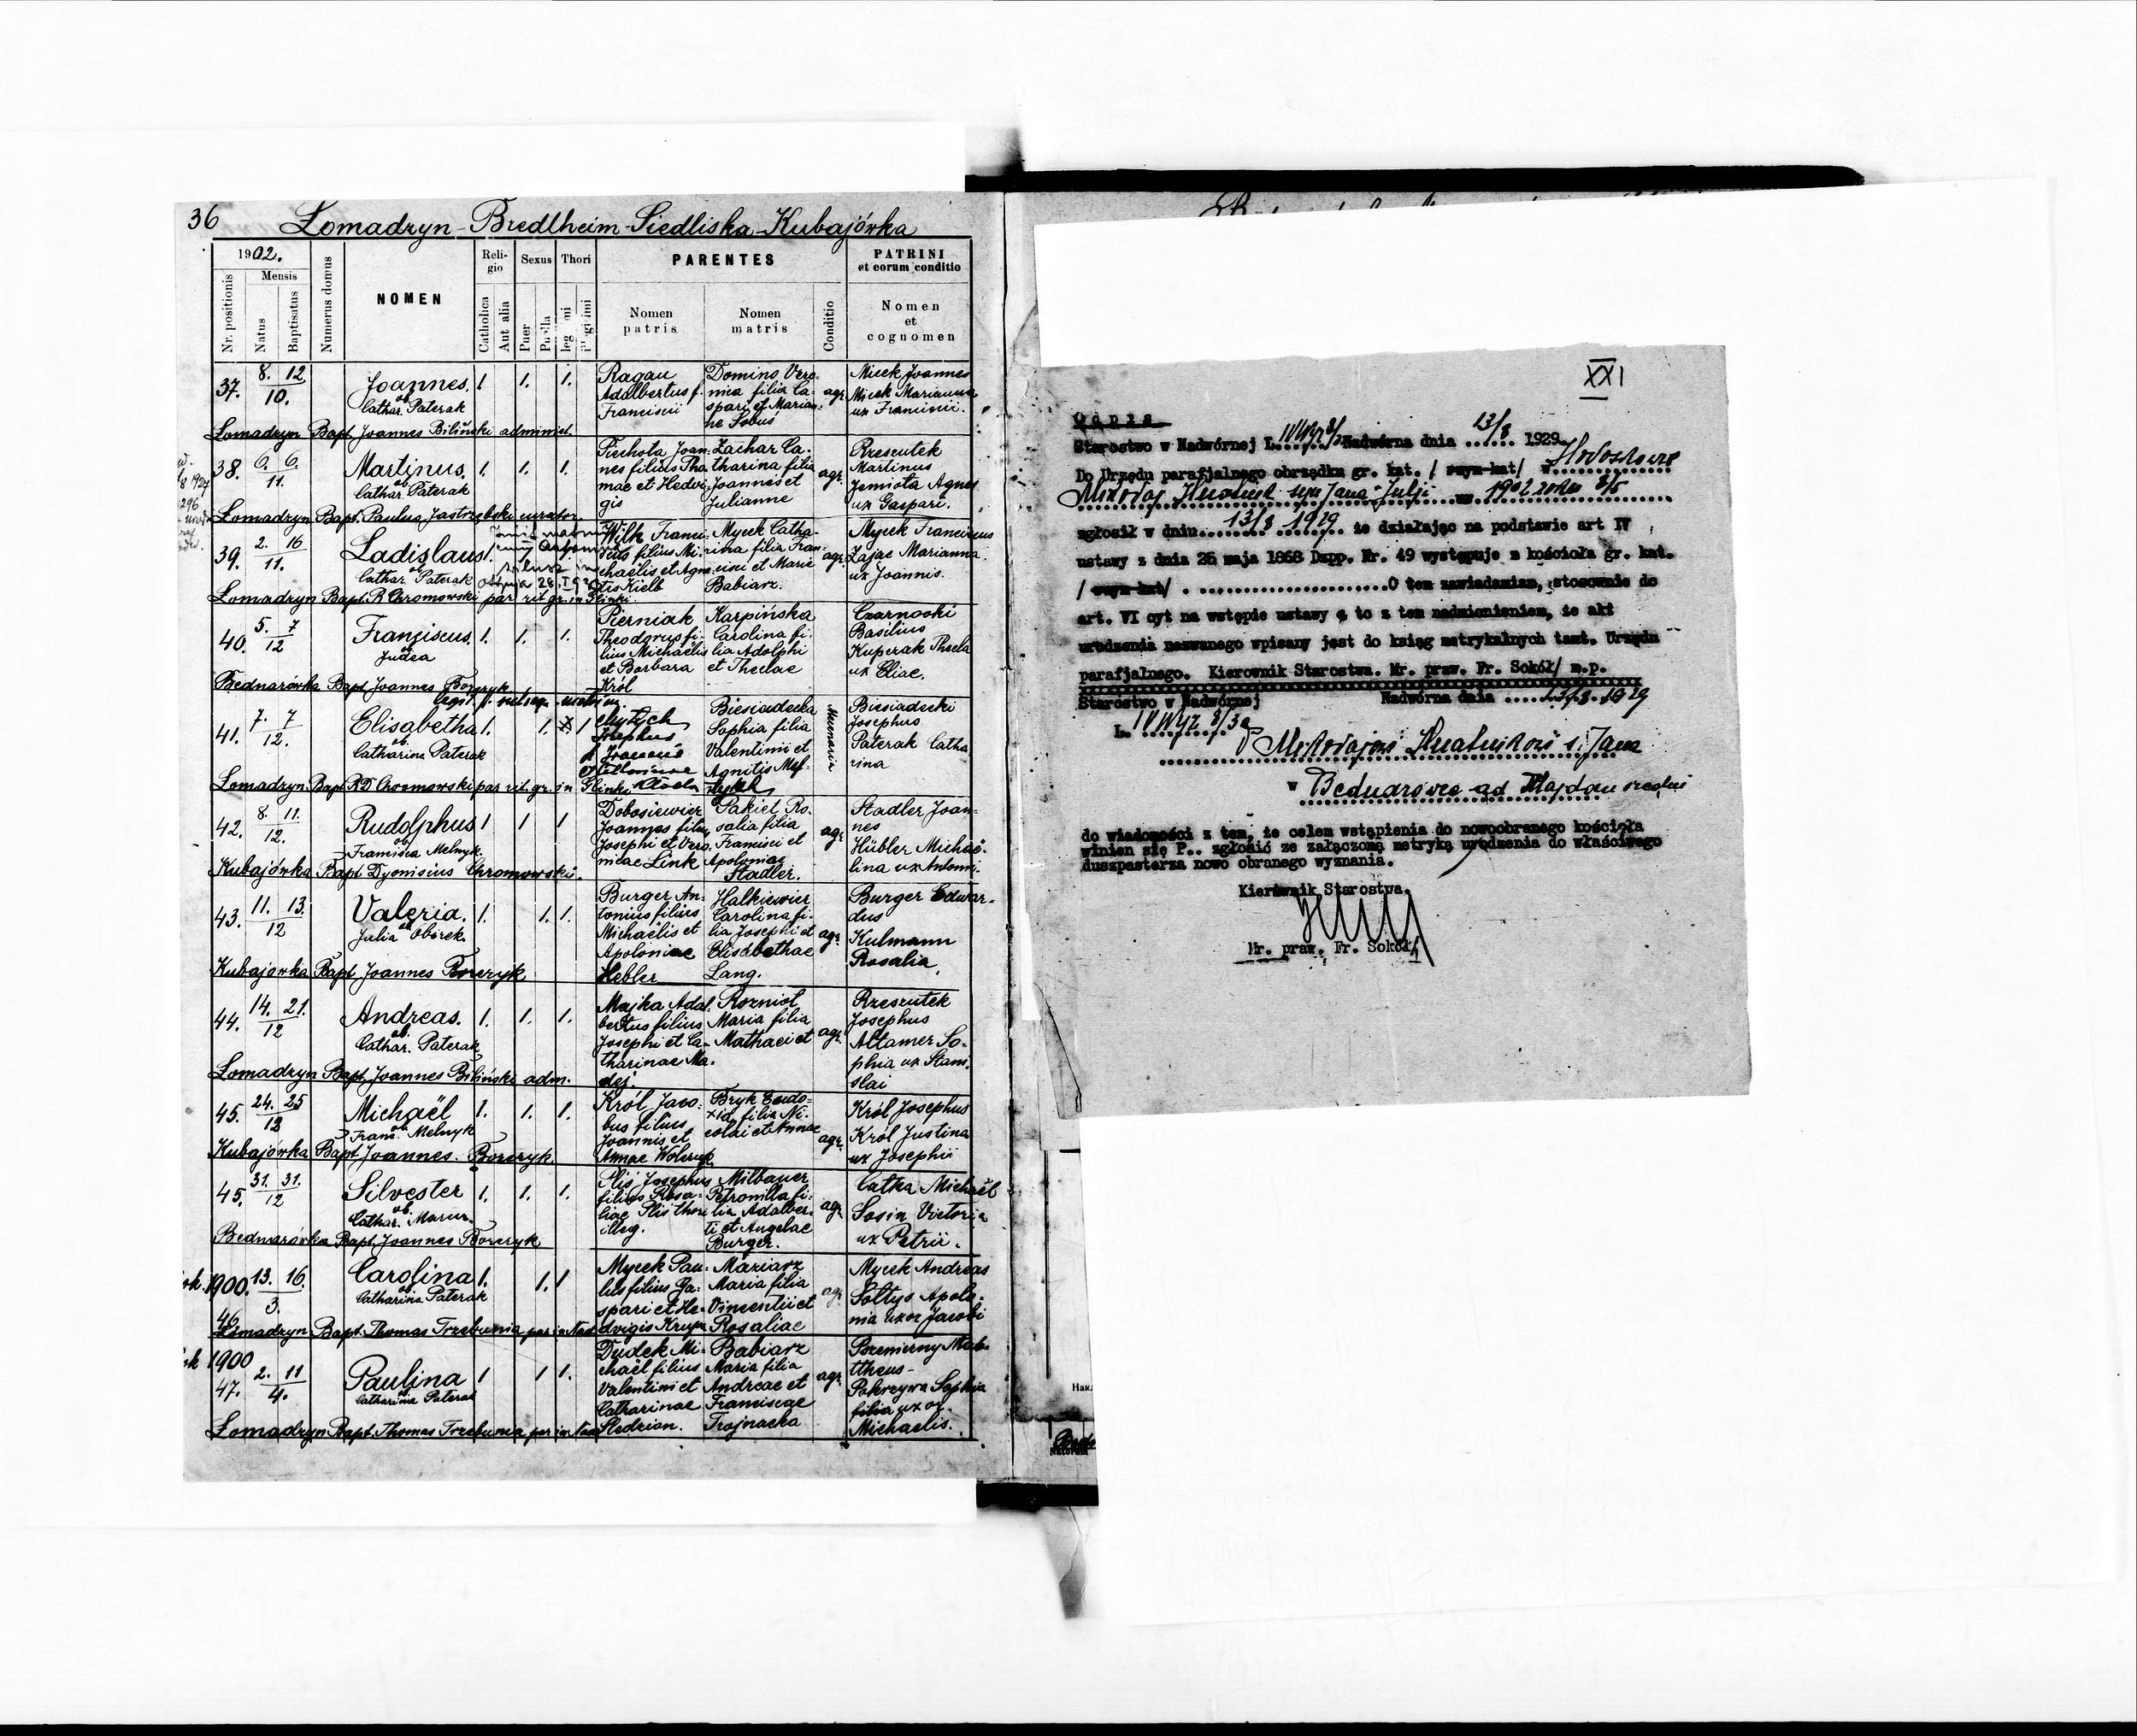 36
Lomadzyn-Bredlheim-Siedliska-Kubajówka
1902.
Nr. positionis
Mensis
Natus
Baptisatus
Numerus domus
NOMEN
Religio
Catholica
Aut alia
Sexus
Puer
Puella
Thori
PARENTES
Nomen patris
Nomen matris
Conditio
PATRINI
et eorum conditio
Nomen
et
cognomen
37. 8. 12 / 10. Joannes. 1. 1. 1.
ob. Cathar. Paterak
Ragau
Adalbertus f.
Francisii
Domino Vero-
nica filia Ca-
spari et Marian-
ne Sobuś
agr.
Micek Joannes
Micek Marianna
ux Francisii.
Lomadzyn Bapt. Joannes Biliński administ.
38. 6. 6. / 11. Martinus. 1. 1. 1.
ob. Cathar. Paterak
Piechota Joan-
nes filius Tho-
mae et Hedvi-
gis
Zachar Ca-
tharina filia
Joannes et
Julianne
agr.
Rzeszutek
Martinus
Jemiota Agnes
ux Gaspari.
Lomadzyn Bapt. Paulus Jastrzębski curator
39. 2. 16 / 11. Ladislaus 1.
ob. Cathar. Paterak
Wilk Franci-
scus filius Mi-
chaëlis et Agne-
tis Kielb
Mycek Catha-
rina filia Fran-
cisci et Marie
Babiarz.
agr.
Mycek Franciscus
Zając Marianna
ux Joannis.
Lomadzyn Bapt. R. Chromowski par. rit. gr. in Hlinki.
40. 5. 7 / 12 Franciscus. 1. 1. 1.
ob. Judea
Pierniak
Theodorus fi-
lius Michaëlis
et Barbara
Król
Karpińska
Carolina fi-
lia Adolphi
et Theclae
Czarnocki
Basilius
Kuperak Thecla
ux Eliae.
Bednarówka Bapt. Joannes Borczyk
41. 7. 7 / 12. Elisabetha 1. 1.
ob. Catharina Paterak
Biesiadecka
Sophia filia
Valentini et
Agnitis
Biesiadecki
Josephus
Paterak Catha
rina
Lomadzyn Bapt. RD Chromowski par. rit. gr. in Hlinki
42. 8. 11. / 12. Rudolphus 1 1 1
ob. Francisca Melnyk.
Dobosiewicz
Joannes filius
Josephi et Vero-
nicae Link
Pakiet Ro-
salia filia
Francisci et
Apoloniae
Stadler.
agr.
Stadler Joan-
nes
Hübler Michaë-
lina ux Antonii.
Kubajówka Bapt Dyonisius Chromowski.
43. 11. 13. / 12 Valeria. 1. 1. 1.
ob. Julia Obirek.
Burger An-
tonius filius
Michaëlis et
Apoloniae
Hebler
Halkiewicz
Carolina fi-
lia Josephi et
Elisabethae
Lang.
agr.
Burger Edwar-
dus
Kulmann
Rosalia
Kubajówka Bapt Joannes Borczyk
44. 14. 21. / 12 Andreas. 1. 1. 1.
ob. Cathar. Paterak
Majka Adal-
bertus filius
Josephi et Ca-
tharinae Ma-
dej.
Rozniol
Maria filia
Mathaei et
agr.
Rzeszutek
Josephus
Altamer So-
phia ux Stani-
slai
Lomadzyn Bapt Joannes Biliński adm.
45. 24. 25 / 12 Michaël 1. 1. 1.
ob. Franc. Melnyk
Król Jaco-
bus filius
Joannis et
Annae
Bryk Eudo-
xia filia Ni-
colai et Annae
agr.
Król Josephus
Król Justina
ux Josephii
Kubajówka Bapt Joannes. Borczyk.
45. 31. 31. / 12 Silvester 1. 1. 1.
ob. Cathar. Mazur.
Plis Josephus
filius Rosa-
liae Plis thori
illeg.
Milbauer
Petronilla fi-
lia Adalber-
ti et Angelae
Burger.
agr.
Catka Michaël
Sosin Victoria
ux Petrii.
Bednarówka Bapt. Joannes Borczyk
1900. 46. 13. 16. / 3. Carolina 1. 1. 1
ob. Catharina Paterak
Mycek Pau-
lus filius Ga-
spari et He-
dvigis Krupa
Maziarz
Maria filia
Vincentii et
Rosaliae
agr.
Mycek Andreas
Soltys Apolo-
nia uxor Jacobi
Lomadzyn Bapt. Thomas Trzebunia par in Nad
1900 47. 2. 11 / 4. Paulina 1 1 1.
ob. Catharina Paterak
Dudek Mi-
chaël filius
Valentini et
Catharinae
Sledzion.
Babiarz
Maria filia
Andreae et
Franciscae
Trojnacka
agr.
Bzemierny Mat-
theus-
Pokrzywa Sophia
filia uxor
Michaelis.
Lomadzyn Bapt. Thomas Trzebunia par in Nad
XXI
Odpis
Starostwo w Nadwórnej L. Nadwórna dnia 13/8 1929.
Do Urzędu parafjalnego obrządku gr. kat. / rzym-kat/ w
Mikołaj syn Jana Julji ur 1902 roku 8/5
zgłosił w dniu 13/8 1929 że działając na podstawie art IV
ustawy z dnia 25 maja 1868 Dzpp. Nr. 49 występuje z kościoła gr. kat.
/ rzym-kat/ . O tem zawiadamiam, stosownie do
art. VI cyt na wstępie ustawy a to z tem nadmienieniem, że akt
urodzenia nazwanego wpisany jest do ksiąg metrykalnych tamt. Urzędu
parafjalnego. Kierownik Starostwa. Mr. praw. Fr. Sokół/ m.p.
Starostwo w Nadwórnej Nadwórna dnia 13/8 1929
L.
w Bednarówce ad Majdan średni
do wiadomości z tem, że celem wstąpienia do nowoobranego kościoła
winien się P.. zgłosić ze załączoną metryką urodzenia do właściwego
duszpasterza nowo obranego wyznania.
Kierownik Starostwa.
Mr. praw. Fr. Sokół/